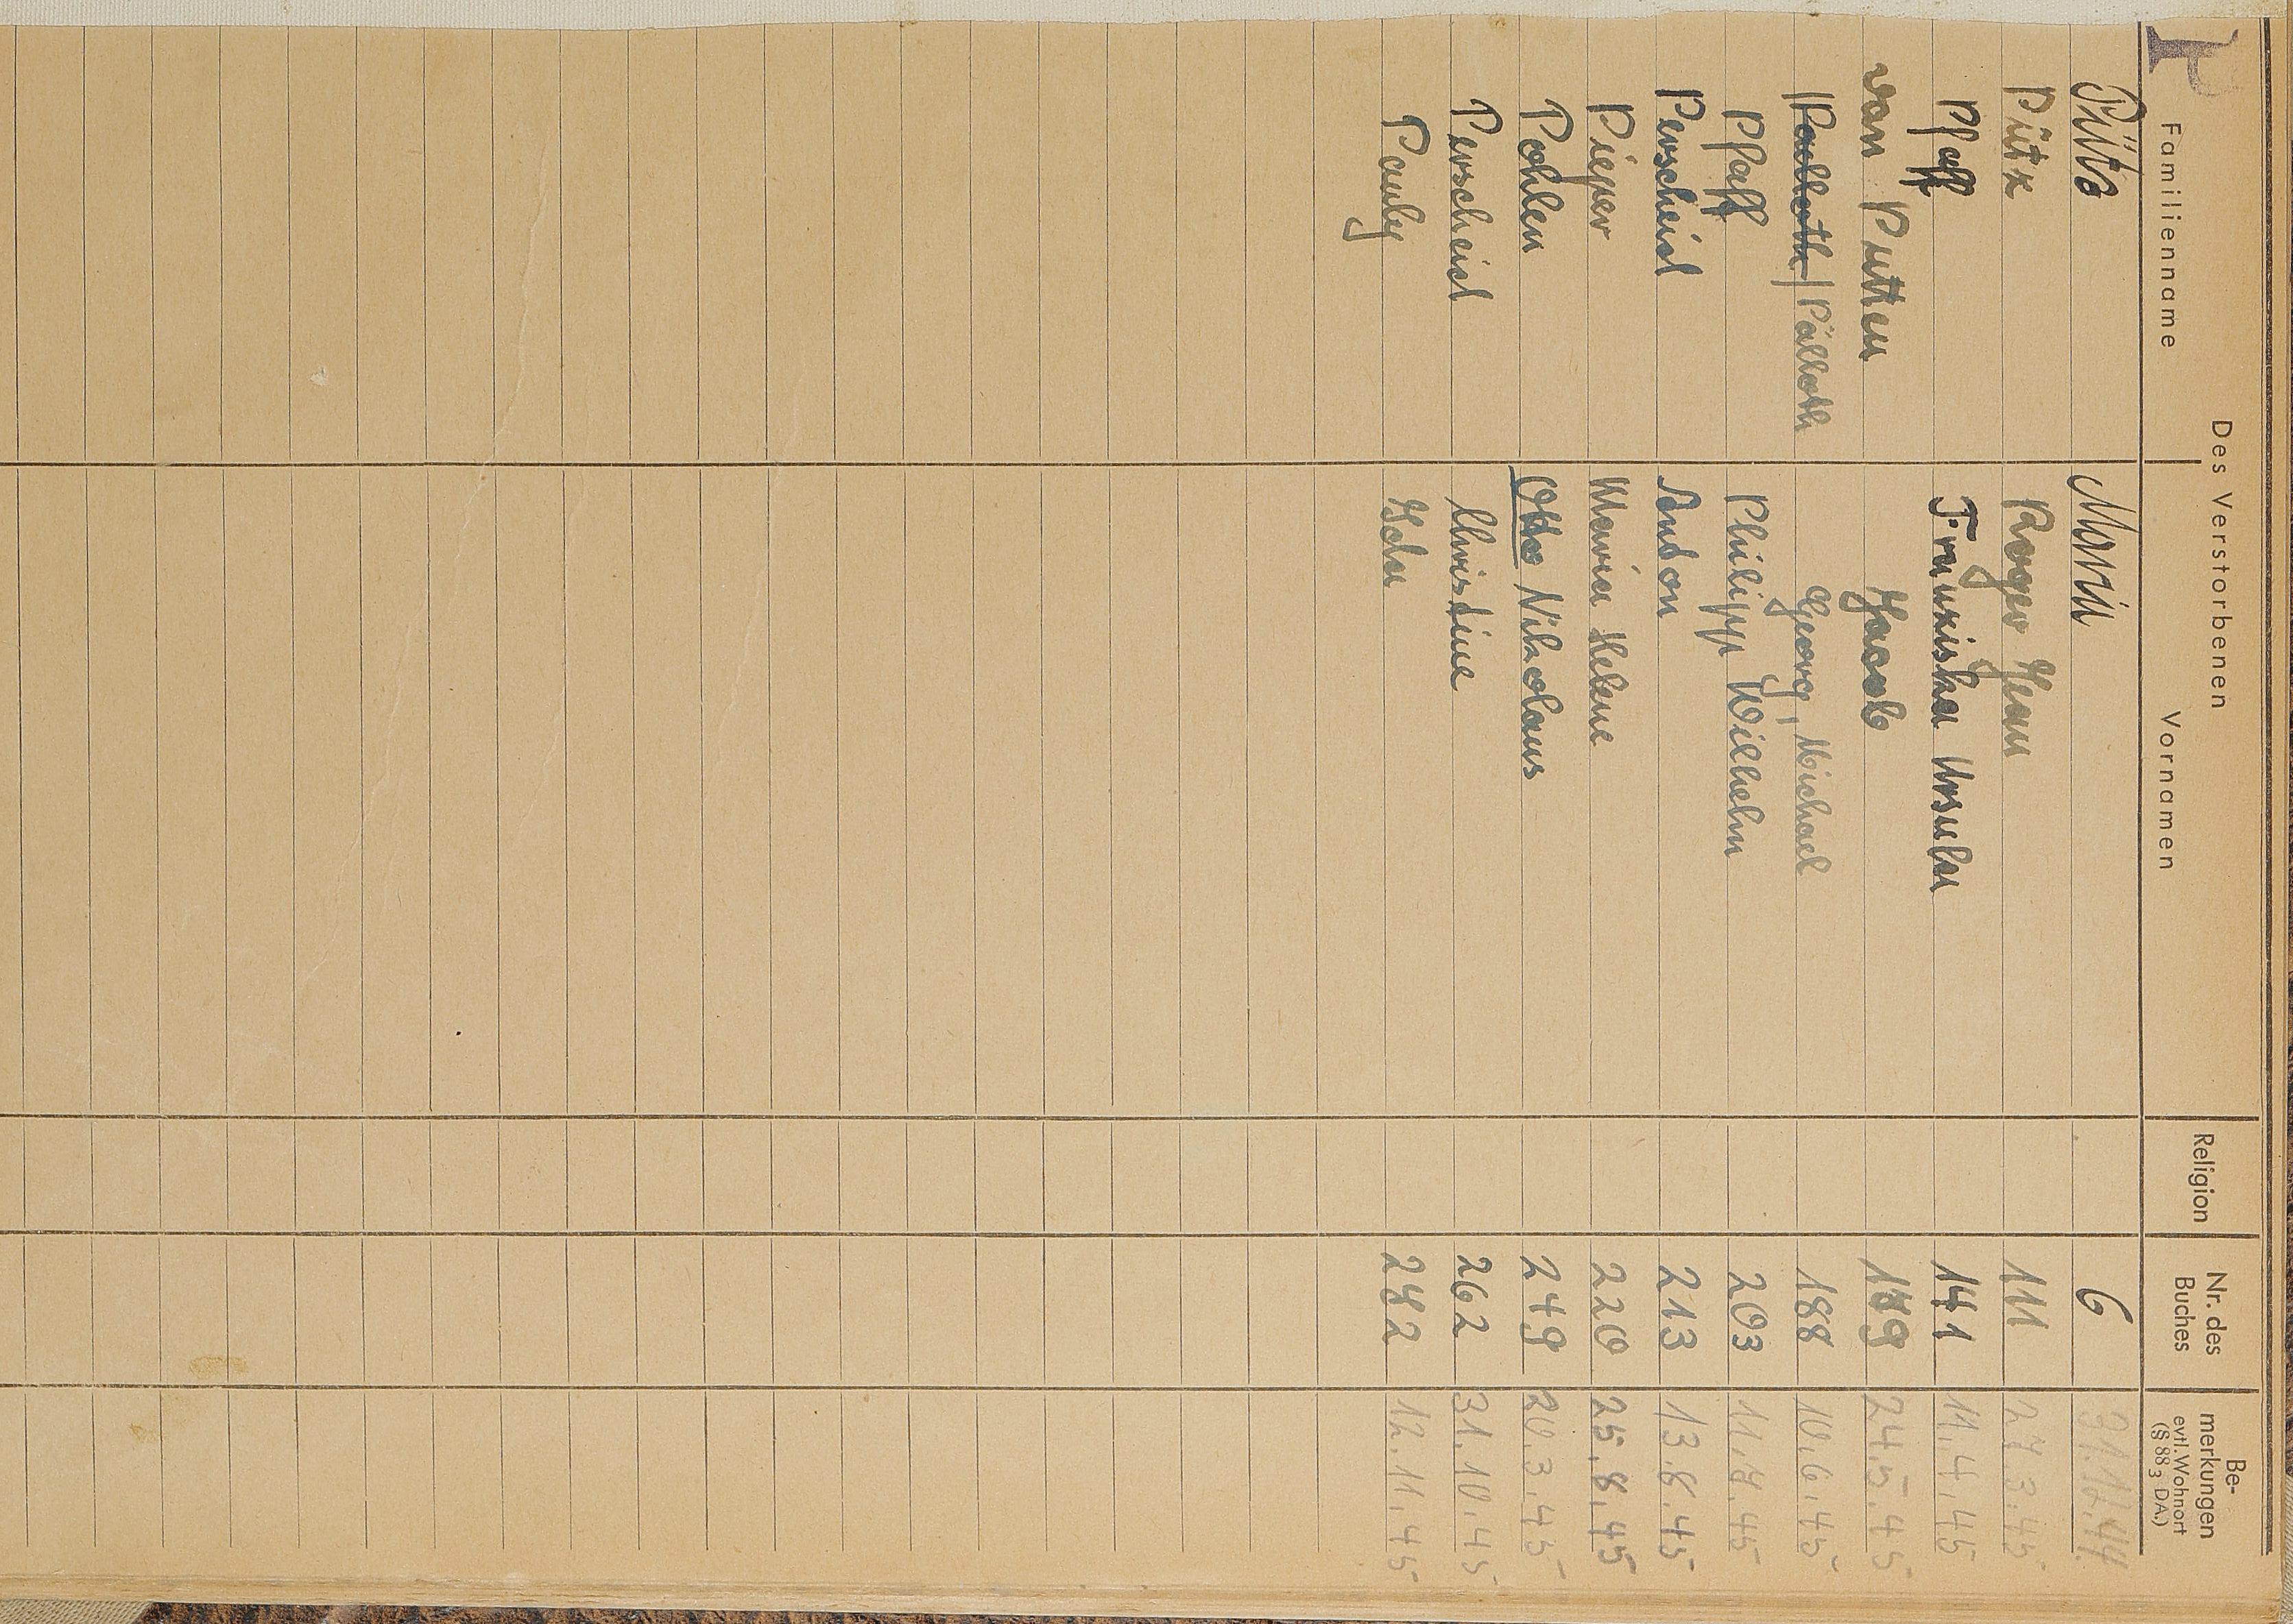 P
Des Verstorbenen
Familienname Vornamen Religion Nr. des Buches Be-merkungen evtl. Wohnort (§ 88 3 DA.)
Pütz Maria 6 31.12.44
Pütz Roger Jean 111 27.3.45
Pfaff Franziska Ursula 141 11.4.45
van Putten Jacob 24.5.45
Pallath Georg, Michael 188 10.6.45
Pfaff Philipp Wilhelm 203 11.7.45
Perscheid Anton 213 13.8.45
Pieper Maria Helene 220 25.8.45
Pohlen Otto Nikolaus 249 20.3.45
Perscheid Christine 262 31.10.45
Pauly Ida 272 12.11.45